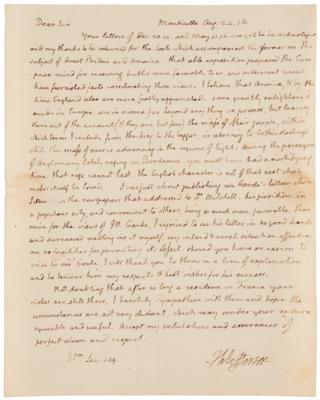 Dear Sir Monticello Aug. 24. 16
Your letters of Dec. 20. 14. and May 11. 16. are yet to be acknoleged
and my thanks to be returned for the book which accompanied the former on the
subject of Great Britain and America. that able exposition prepared the Euro-
pean mind for receiving truths more favorable to us, and subsequent events
have furnished facts corroborating those views. I believe that America, & by this
time England also are more justly appreciated. some greatly enlightened
minds in Europe are in advance far beyond any thing we possess, but leaving
them out of the account (if they are but few) the mass of their people, within
which term I include from the king to the beggar is returning to Gothic darkness
while the mass of ours is advancing in the regions of light. during the paroxysm
of Anglomany lately raging in Bordeaux, you must have had a mortifying
time. that rage cannot last. the English character is not of that cast which
makes itself be loved. I was just about publishing Garde's letter when
I saw in the newspapers that addressed to Dr. Mitchell. his position in
a populous city, and convenient to others being so much more favorable than
mine for the views of Mr. Garde, I rejoiced to see his letter in so good hands
and succeeded my inland & rural situation affording
me no facilities for promoting its object. should you have occasion to
write to Mr. Garde, I will thank you to throw in a line of explanation
and to tender him my respects & best wishes for his success.
Not doubting that after so long a residence in France your
wishes are still there, I heartily sympathise with them and hope the
circumstances are not very distant, which may render your return
agreeable and useful. Accept my salutations and assurances of
perfect esteem and respect.
Th: Jefferson
Wm. Lee esq.